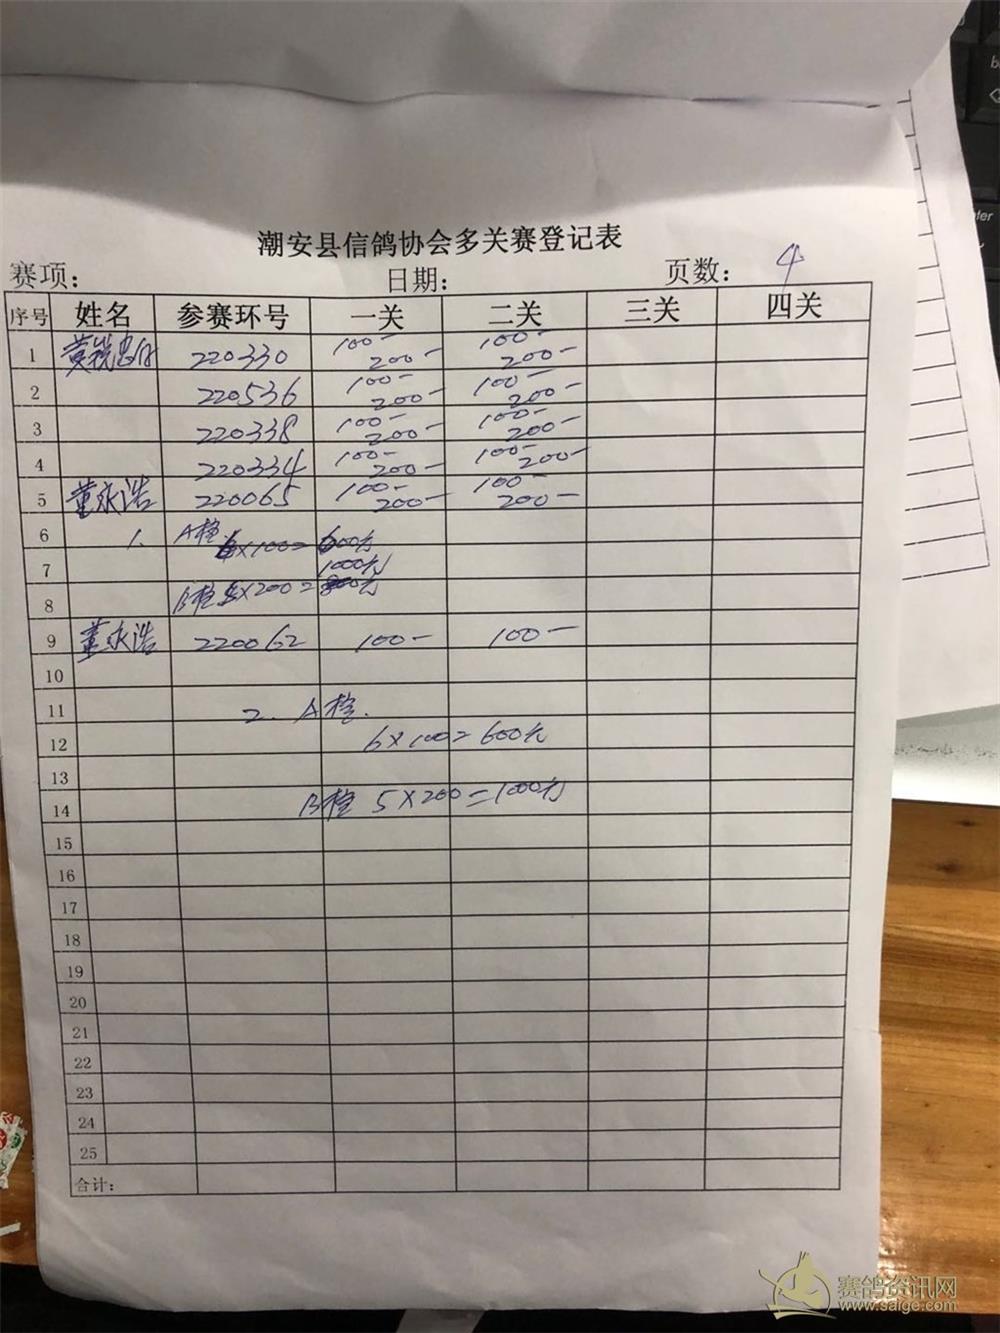 潮安县信鸽协会多关赛登记表
赛项： 日期： 页数： 4
序号 姓名 参赛环号 一关 二关 三关 四关
1 220330 100- 200- 100- 200-
2 220536 100- 200- 100- 200-
3 220338 100- 200- 100- 200-
4 220334 100- 200- 100- 200-
5 董永浩 220065 100- 200- 100- 200-
6 1. A栓 ×100= 600元
7 1000元
8 B栓 5×200=
9 董永浩 220062 100- 100-
10
11 2. A栓.
12 6×100=600元
13
14 B栓 5×200=1000元
15
16
17
18
19
20
21
22
23
24
25
合计：
赛鸽资讯网
www.saige.com